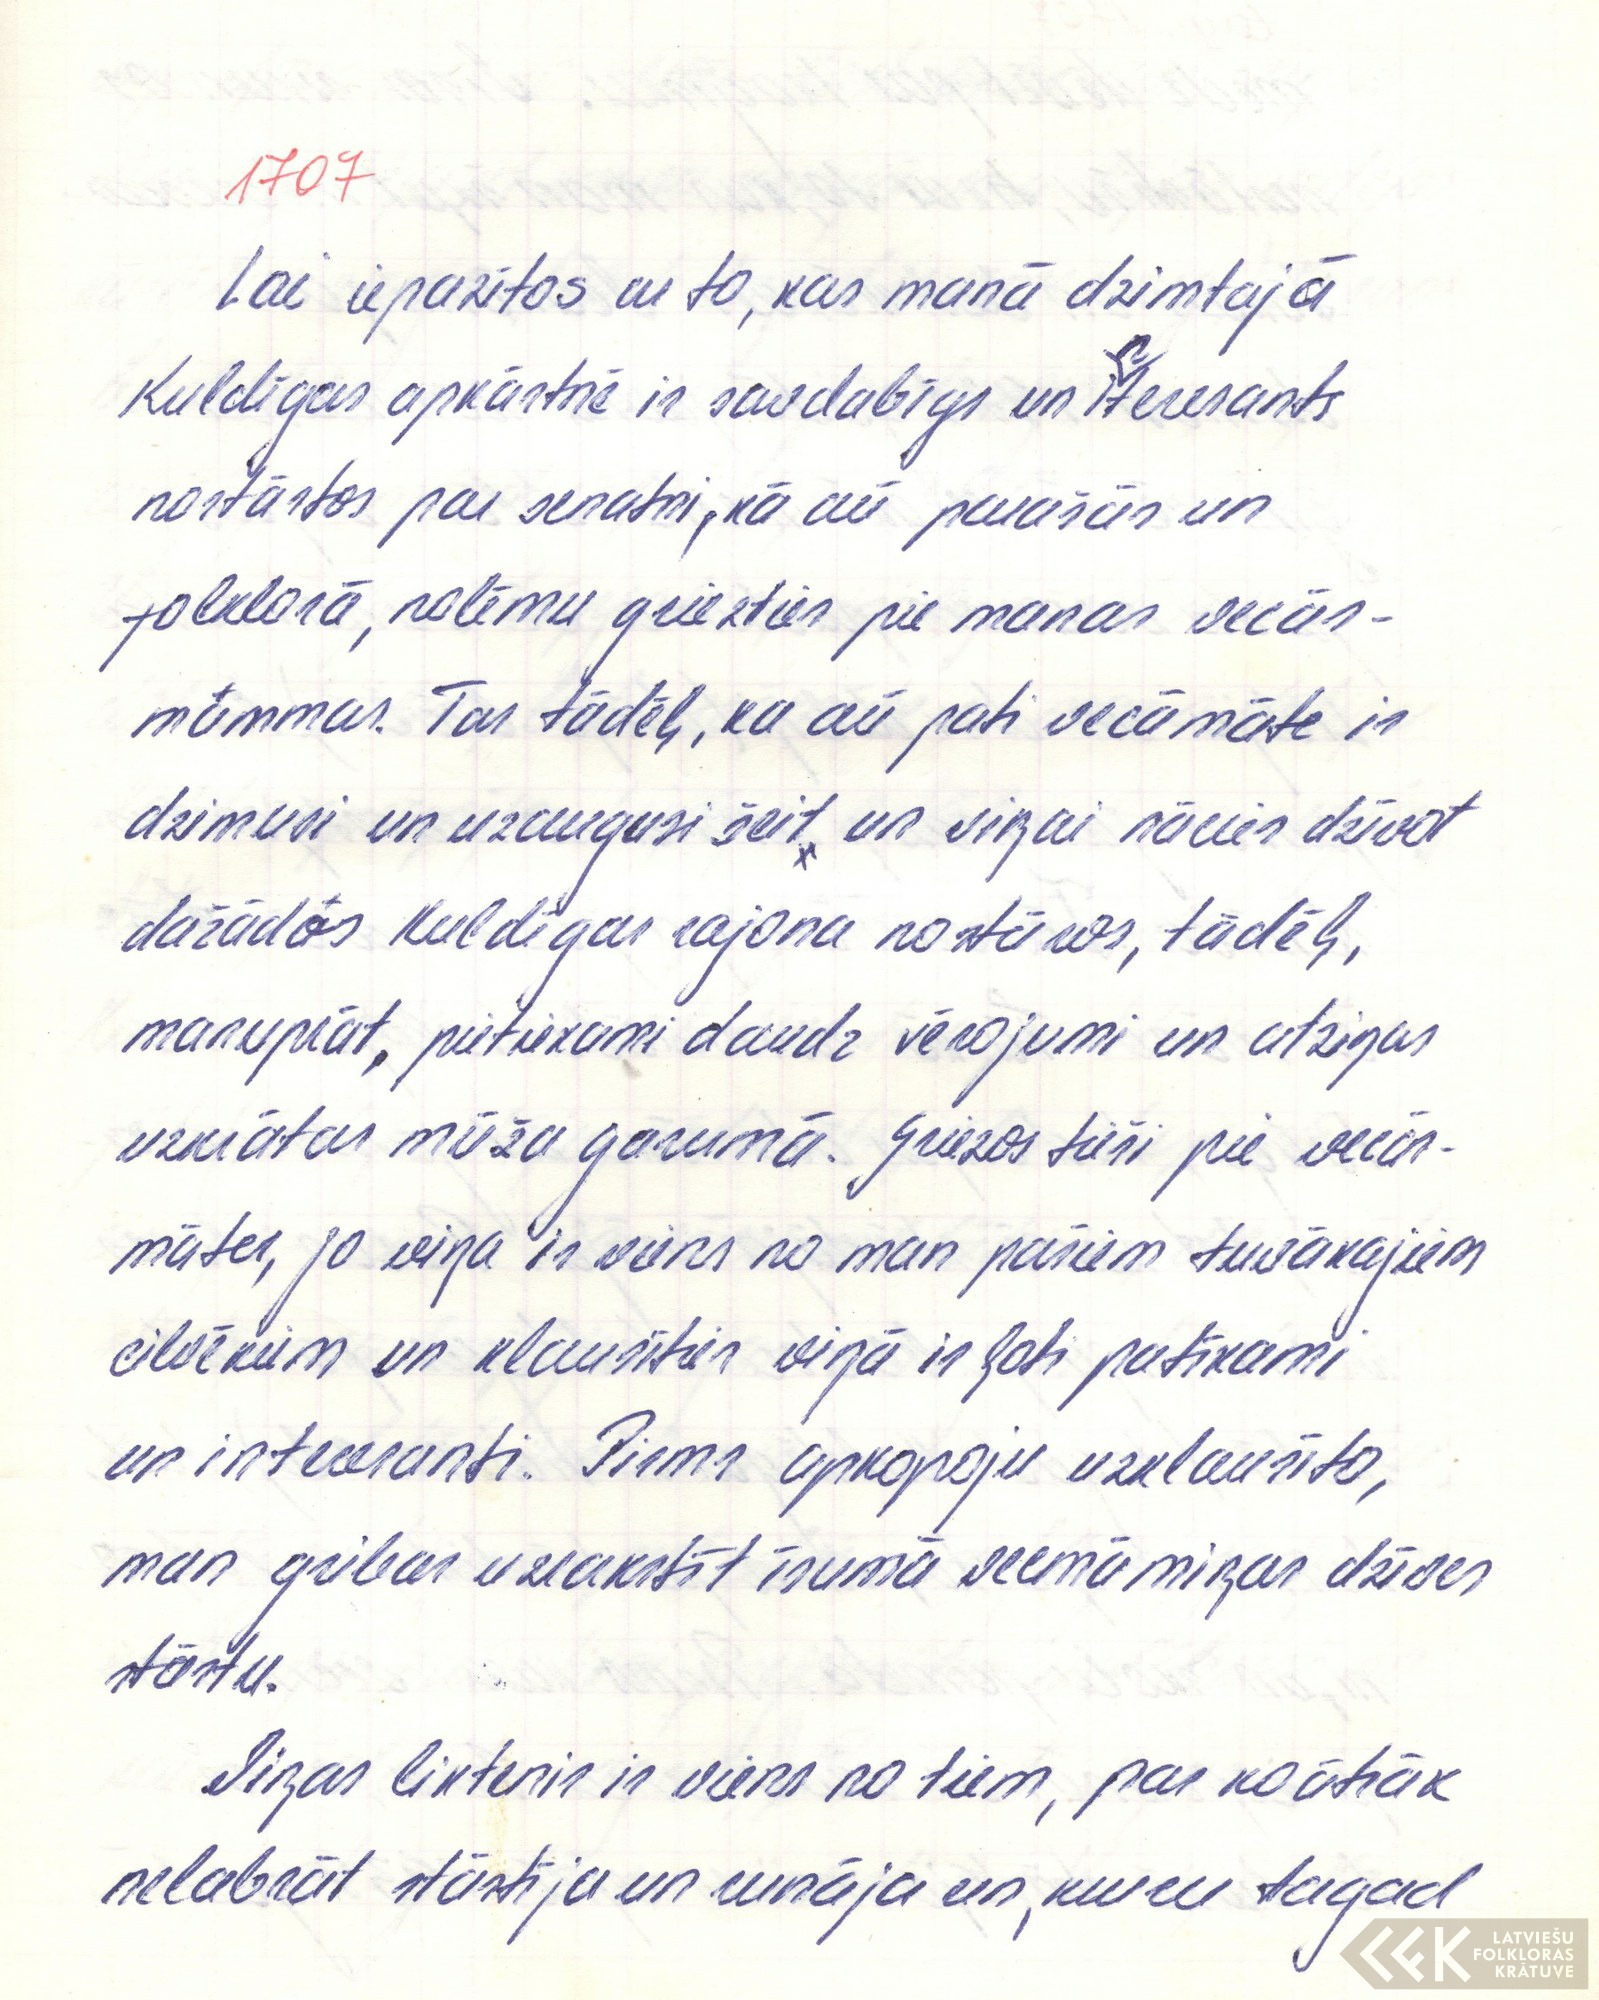 1707
Lai iepazītos ar to, kas manā dzimtajā
Kuldīgas apkārtnē ir savdabīgs un interesants
nostāstos par senatni, kā arī parašās un
folklorā, nolēmu griezties pie manas vecās-
mammas. Tas tādēļ, ka arī pati vecāmāte ir
dzimusi un uzaugusi šeit, un viņai nācies dzīvot
dažādos Kuldīgas rajona nostūros, tādēļ,
manuprāt, pietiekami daudz vērojumi un atziņas
uzkrātas mūža garumā. Griezos tieši pie vecās-
mātes, jo viņa ir viens no man pašiem tuvākajiem
cilvēkiem un klausīties viņā ir ļoti patīkami
un interesanti. Pirms apkopoju uzklausīto,
man gribas uzrakstīt īsumā vecmāmiņas dzīves
stāstu.
Viņas liktenis ir viens no tiem, par ko ātrāk
nelabrāt stāstīja un runāja un, kuru tagad
LATVIEŠU
FOLKLORAS
KRĀTUVE